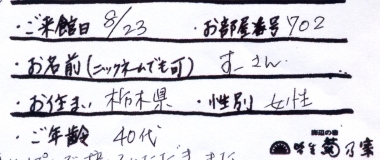 ・ご来館日 8/23 ・お部屋番号 702
・お名前(ニックネームでも可) すーさん
・お住まい 栃木県 ・性別 女性
・ご年齢 40代
海辺の宿